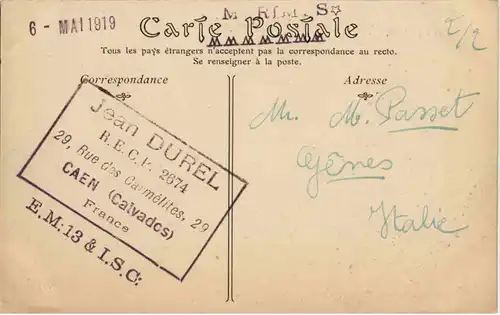 6 - MAI 1919
Carte Postale
Tous les pays étrangers n'acceptent pas la correspondance au recto.
Se renseigner à la poste.
Correspondance
Adresse
Jean DUREL
R.E.C.F. 2674
29, Rue des Carmélites, 29
CAEN (Calvados)
France
E.M: 13 & I.S.C:
Mr. M. Passet
Gênes
Italie